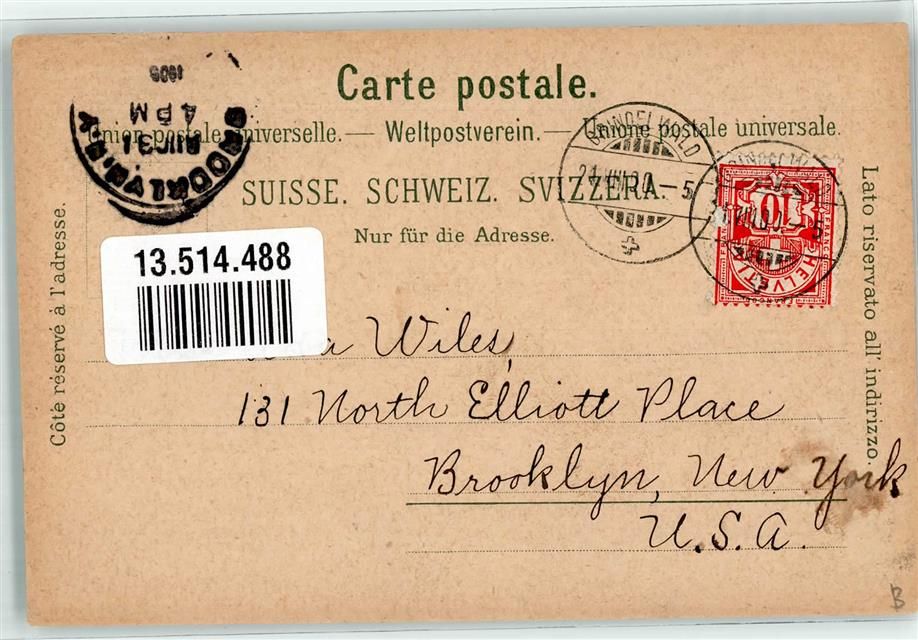 Carte postale.
Union postale universelle. — Weltpostverein. — Unione postale universale.
SUISSE. SCHWEIZ. SVIZZERA.
Nur für die Adresse.
Côté réservé à l'adresse.
Lato riservato all' indirizzo.
BROOKLYN, N.Y.
AUG 31
4 PM
GRINDELWALD
10
HELVETIA
FRANCO
13.514.488
Wiles,
131 North Elliott Place
Brooklyn, New York
U.S.A.
B